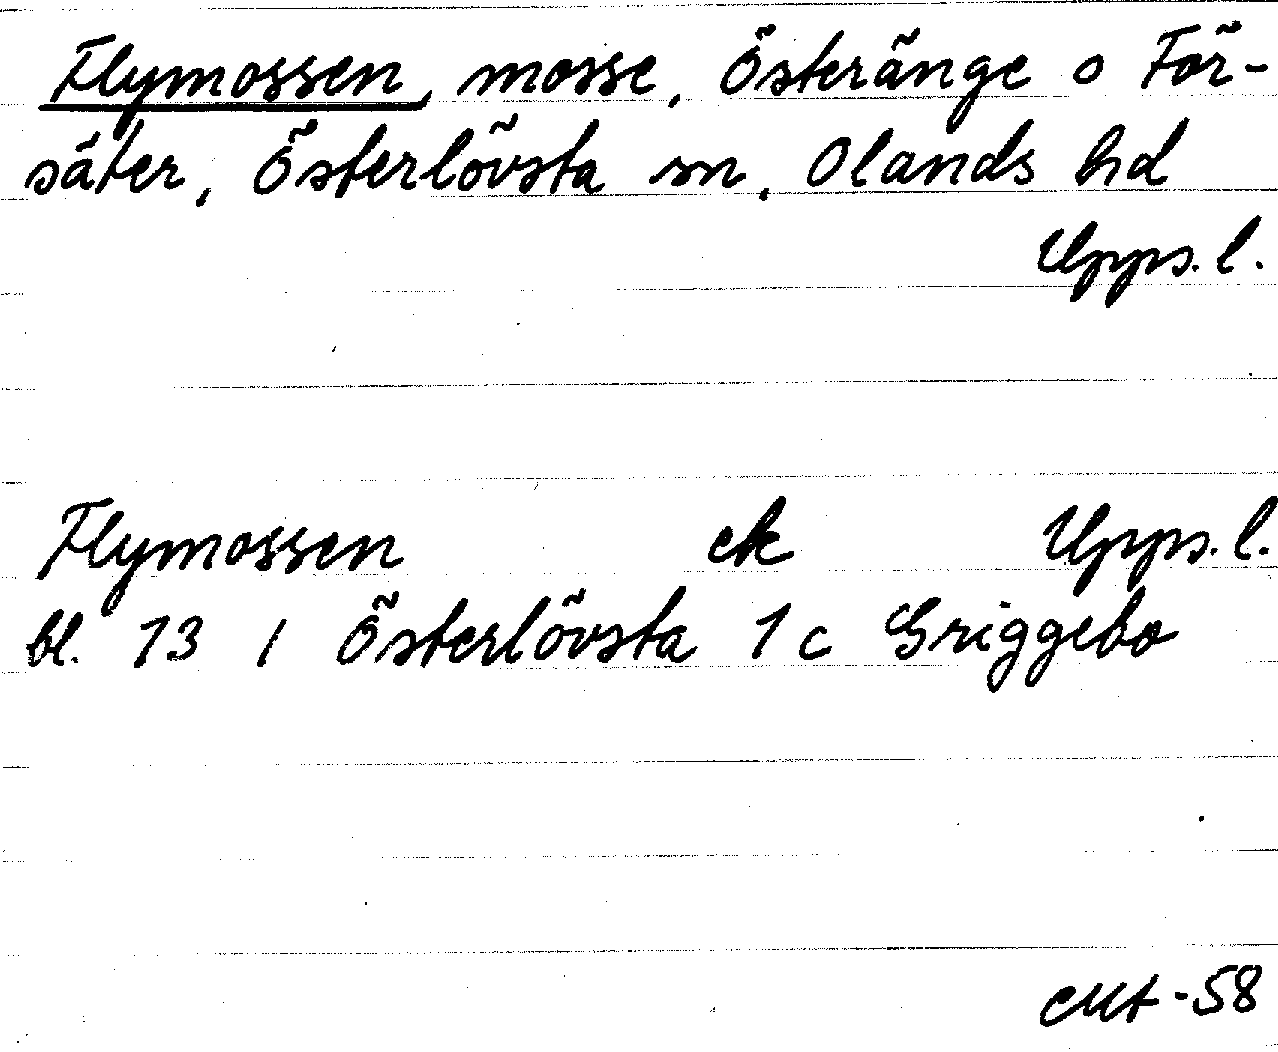 Flymossen, mosse, Österänge o För-
säter, Österlövsta sn, Olands hd
Upps. l.
Flymossen ek Upps. l.
bl. 13 / Österlövsta 1 c Griggebo
-58